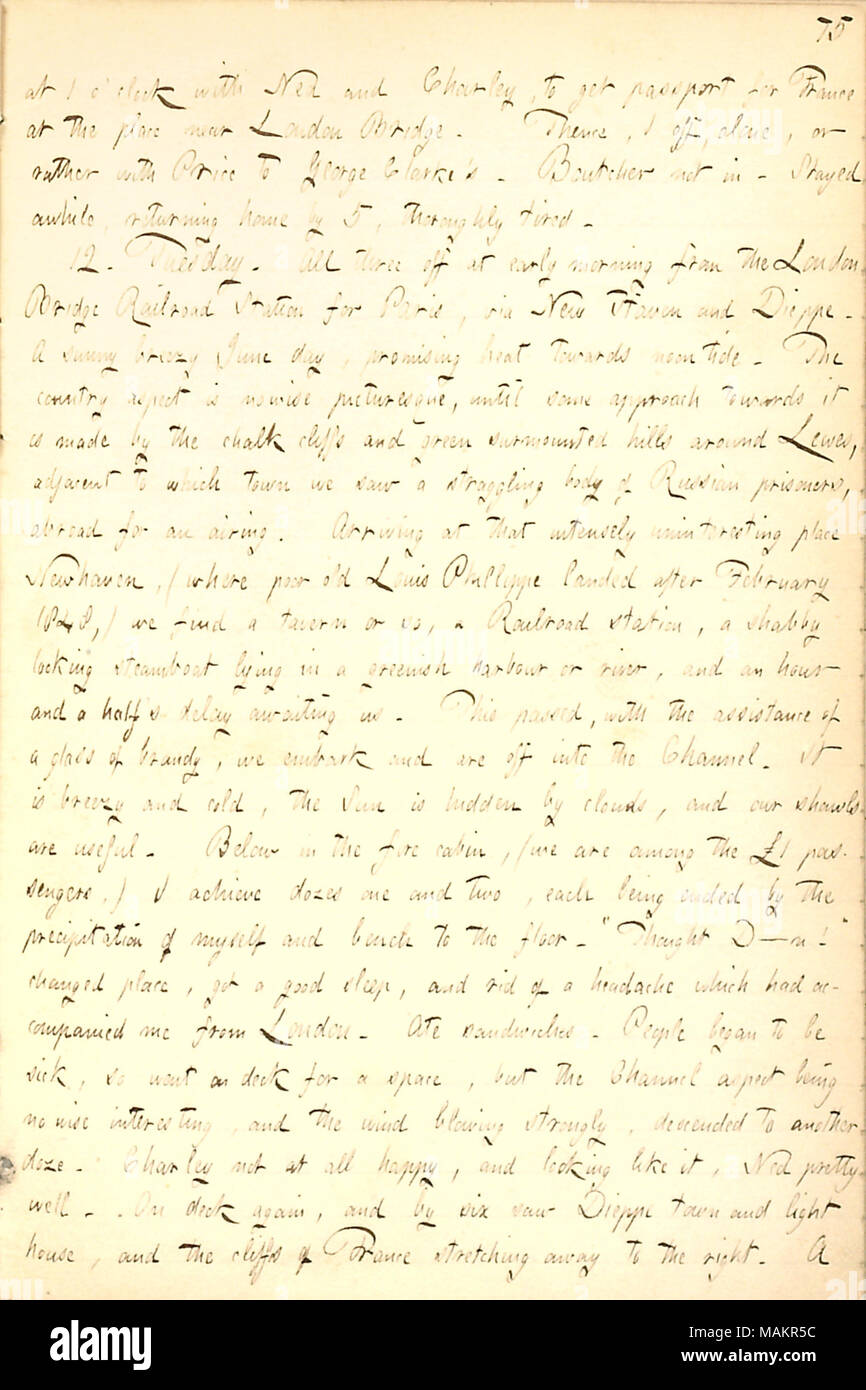 75
at 1 o'clock with Ned and Charley, to get passport for France
at the place near London Bridge. Thence, I off, alone, or
rather with Price to George Clarke's. Boutcher not in. Stayed
awhile, returning home by 5, thoroughly tired.
12. Tuesday. All three off at early morning from the London
Bridge Railroad Station for Paris, via New Haven and Dieppe.
A sunny breezy June day, promising heat towards noontide. The
country aspect is nowise picturesque, until some approach towards it
is made by the chalk cliffs and green surmounted hills around Lewes,
adjacent to which town we saw a straggling body of Russian prisoners,
abroad for an airing. Arriving at that intensely uninteresting place
Newhaven, (where poor old Louis Phillippe landed after February
1848,) we find a tavern or so, a Railroad station, a shabby
looking steamboat lying in a greenish harbour or river, and an hour
and a half's delay awaiting us. This passed, with the assistance of
a glass of brandy, we embark and are off into the Channel. It
is breezy and cold, the Sun is hidden by clouds, and our shawls
are useful. Below in the fore cabin, (we are among the £1 pas-
sengers,) I achieve dozes one and two, each being ended by the
precipitation of myself and bench to the floor. "Thought D—n!"
changed place, got a good sleep, and rid of a headache which had ac-
companied me from London. Ate sandwiches. People began to be
sick, so went on deck for a space, but the Channel aspect being
no wise interesting, and the wind blowing strongly, descended to another
doze. Charley not at all happy, and looking like it, Ned pretty
well. On deck again, and by six saw Dieppe town and light
house, and the cliffs of France stretching away to the right. A
alamy
Image ID: MAKR5C
www.alamy.com